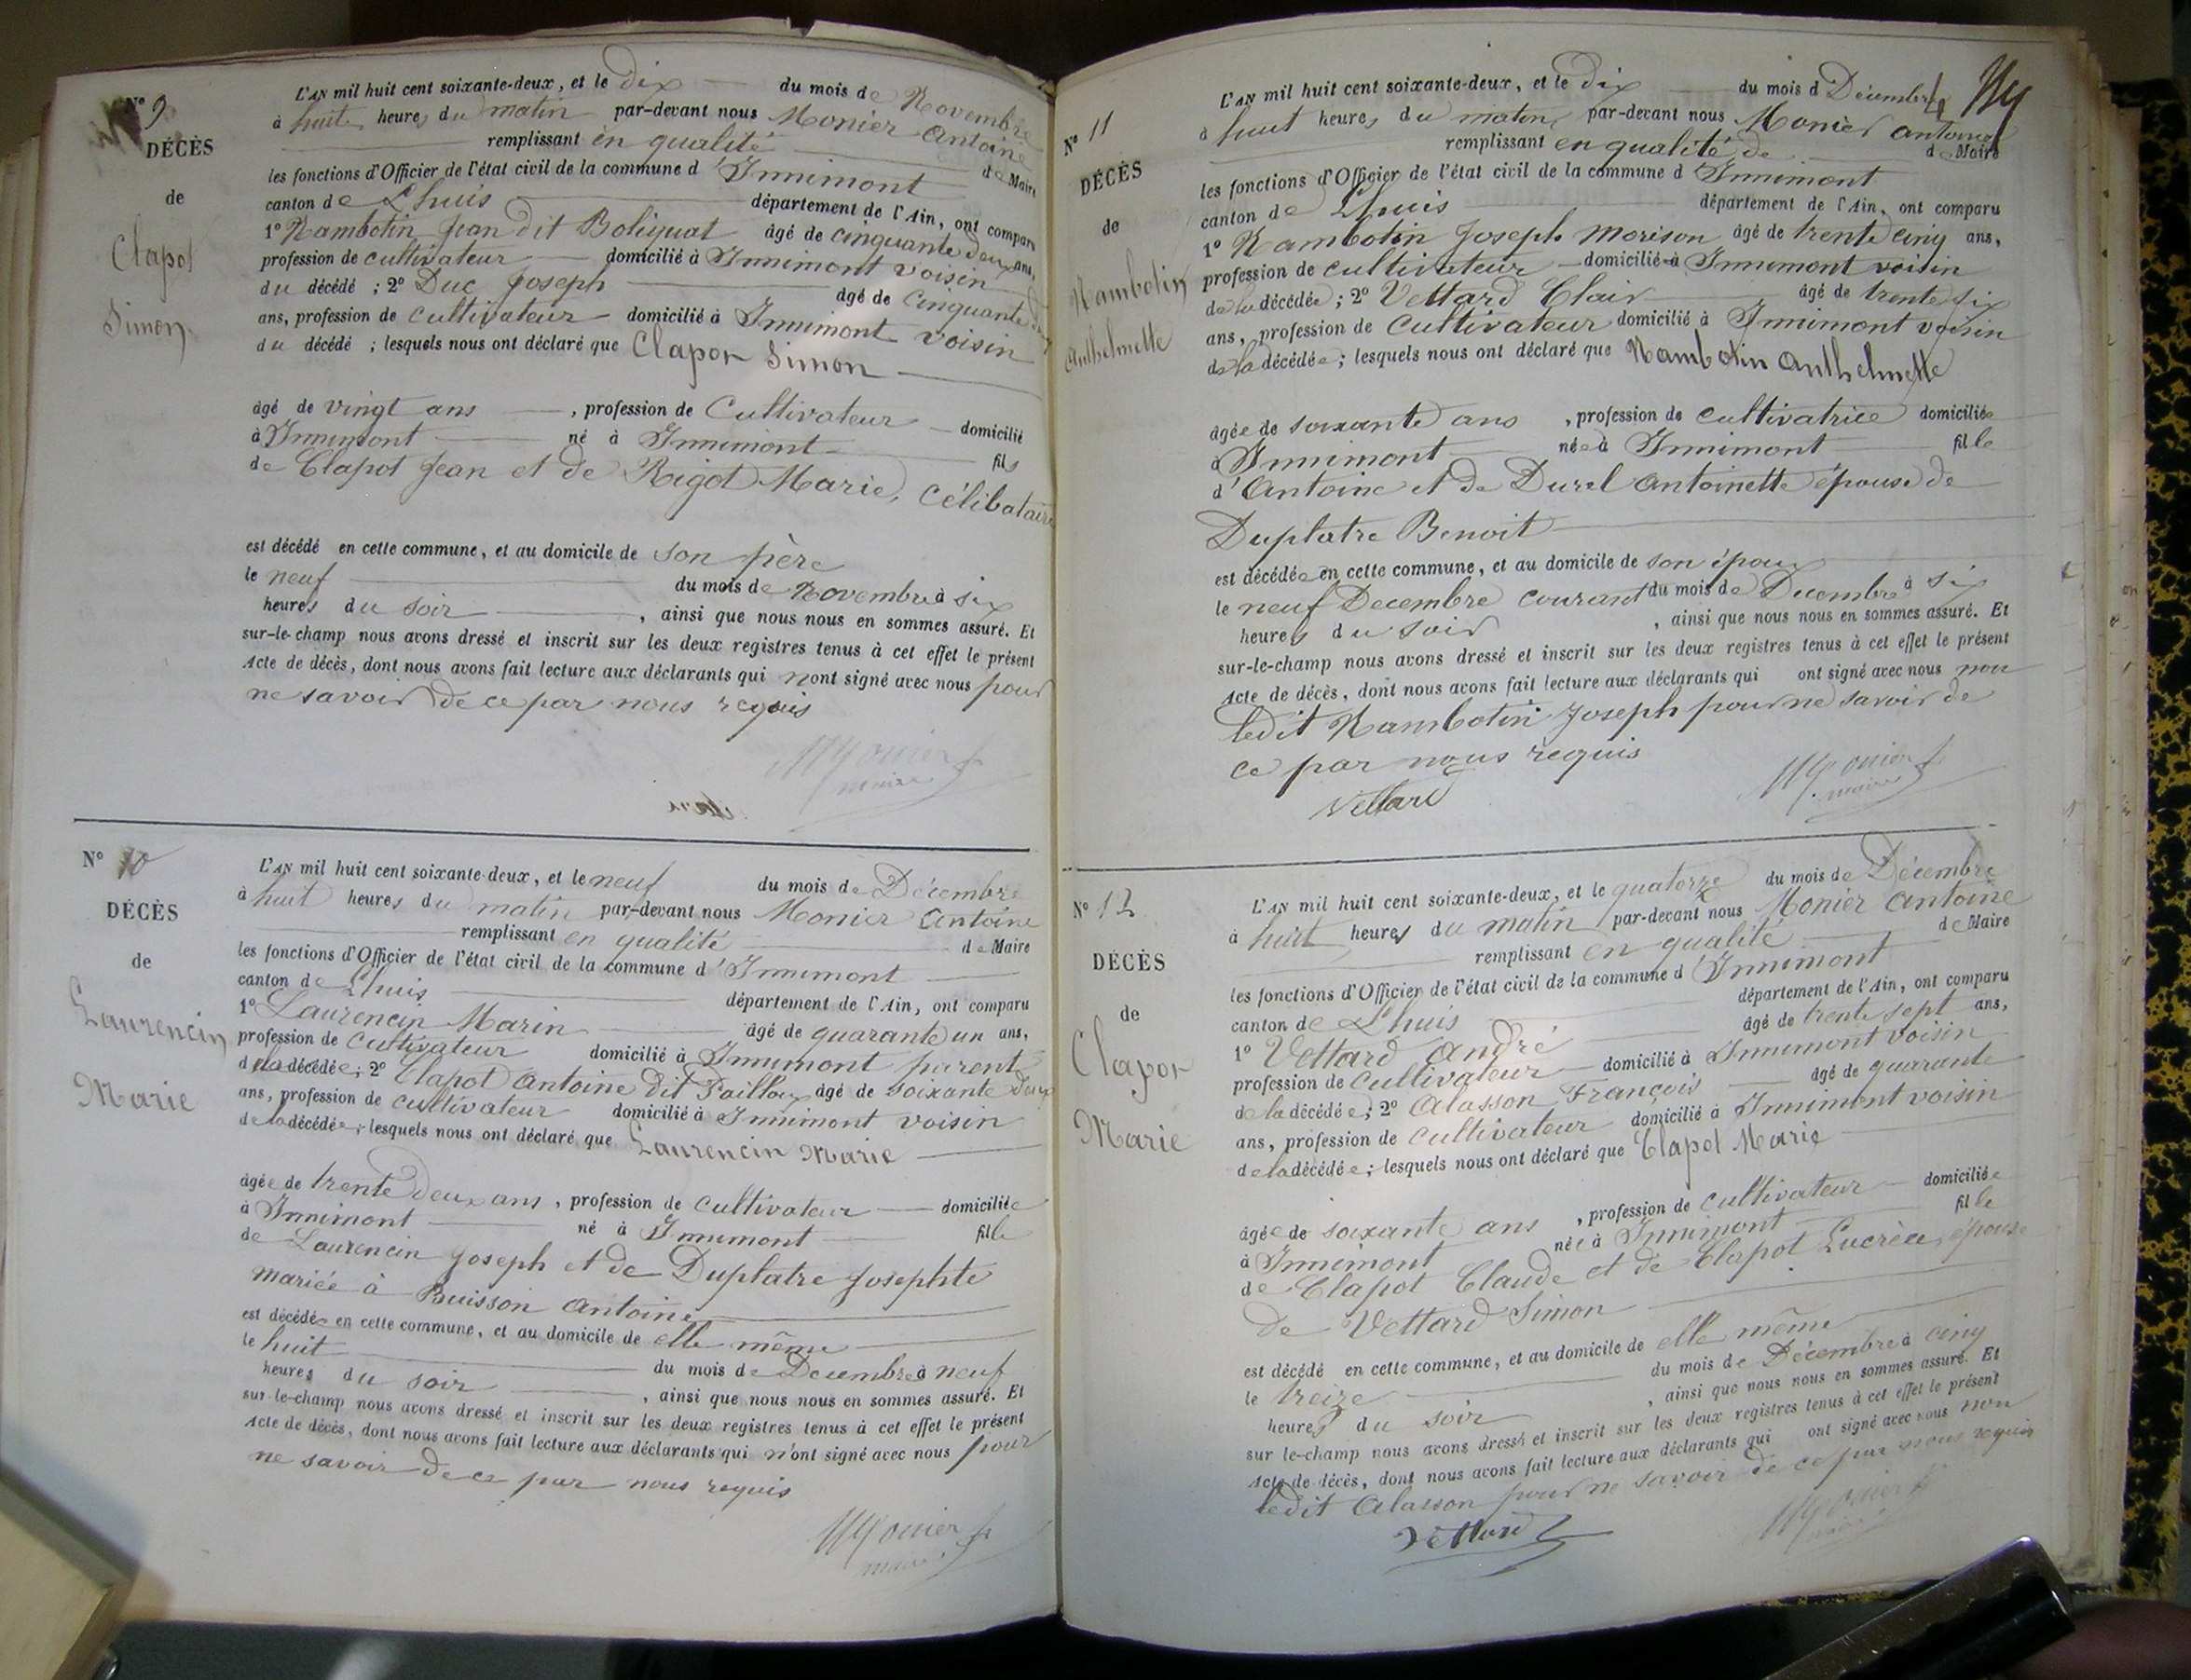 N° 9
DÉCÈS
de
Clapot
Simon
L'AN mil huit cent soixante-deux, et le dix du mois de Novembre
à huit heures du matin par-devant nous Monier Antoine
remplissant en qualité de Maire
les fonctions d'Officier de l'état civil de la commune d'Innimont
canton de Lhuis département de l'Ain, ont comparu
1° Nambotin Jean dit Boliquat âgé de cinquante deux ans,
profession de cultivateur domicilié à Innimont voisin
du décédé ; 2° Duc Joseph âgé de cinquante
ans, profession de cultivateur domicilié à Innimont voisin
du décédé ; lesquels nous ont déclaré que Clapot Simon
âgé de vingt ans , profession de Cultivateur domicilié
à Innimont né à Innimont fils
de Clapot Jean et de Rigot Marie, Célibataire
est décédé en cette commune, et au domicile de son père
le neuf du mois de Novembre à six
heures du soir , ainsi que nous nous en sommes assuré. Et
sur-le-champ nous avons dressé et inscrit sur les deux registres tenus à cet effet le présent
Acte de décès, dont nous avons fait lecture aux déclarants qui n'ont signé avec nous pour
ne savoir de ce par nous requis
Monier
maire
N° 10
DÉCÈS
de
Laurencin
Marie
L'AN mil huit cent soixante-deux, et le neuf du mois de Décembre
à huit heures du matin par-devant nous Monier Antoine
remplissant en qualité de Maire
les fonctions d'Officier de l'état civil de la commune d'Innimont
canton de Lhuis département de l'Ain, ont comparu
1° Laurencin Marin âgé de quarante un ans,
profession de Cultivateur domicilié à Innimont parent
de la décédée ; 2° Clapot Antoine dit Paillou âgé de soixante deux
ans, profession de cultivateur domicilié à Innimont voisin
de la décédée ; lesquels nous ont déclaré que Laurencin Marie
âgée de trente deux ans , profession de cultivateur domiciliée
à Innimont né à Innimont fille
de Laurencin Joseph et de Duplatre Josephte
mariée à Buisson Antoine
est décédée en cette commune, et au domicile de elle même
le huit du mois de Decembre à neuf
heures du soir , ainsi que nous nous en sommes assuré. Et
sur-le-champ nous avons dressé et inscrit sur les deux registres tenus à cet effet le présent
Acte de décès, dont nous avons fait lecture aux déclarants qui n'ont signé avec nous pour
ne savoir de ce par nous requis
Monier
maire
N° 11
DÉCÈS
de
Nambotin
Anthelmette
L'AN mil huit cent soixante-deux, et le dix du mois d Décembre
à huit heures du matin par-devant nous Monier Antoine
remplissant en qualité de de Maire
les fonctions d'Officier de l'état civil de la commune d'Innimont
canton de Lhuis département de l'Ain, ont comparu
1° Nambotin Joseph Morison âgé de trente cinq ans,
profession de cultivateur domicilié à Innimont voisin
de la décédée ; 2° Vettard Clair âgé de trente six
ans, profession de Cultivateur domicilié à Innimont voisin
de la décédée ; lesquels nous ont déclaré que Nambotin Anthelmette
âgée de soixante ans , profession de cultivatrice domiciliée
à Innimont née à Innimont fille
d'Antoine et de Durel Antoinette épouse de
Duplatre Benoit
est décédée en cette commune, et au domicile de son époux
le neuf Decembre courant du mois de Decembre à six
heures du soir , ainsi que nous nous en sommes assuré. Et
sur-le-champ nous avons dressé et inscrit sur les deux registres tenus à cet effet le présent
Acte de décès, dont nous avons fait lecture aux déclarants qui ont signé avec nous non
ledit Nambotin Joseph pour ne savoir de
ce par nous requis
Vettard
Monier
maire
N° 12
DÉCÈS
de
Clapot
Marie
L'AN mil huit cent soixante-deux, et le quatorze du mois de Décembre
à huit heures du matin par-devant nous Monier Antoine
remplissant en qualité de Maire
les fonctions d'Officier de l'état civil de la commune d'Innimont
canton de Lhuis département de l'Ain, ont comparu
1° Vettard André âgé de trente sept ans,
profession de Cultivateur domicilié à Innimont voisin
de la décédée ; 2° Alasson François âgé de quarante
ans, profession de cultivateur domicilié à Innimont voisin
de la décédée ; lesquels nous ont déclaré que Clapot Marie
âgée de soixante ans , profession de cultivateur domiciliée
à Innimont née à Innimont fille
de Clapot Claude et de Clapot Lucrèce, épouse
de Vettard Simon
est décédé en cette commune, et au domicile de elle même
le treize du mois de Décembre à cinq
heures du soir , ainsi que nous nous en sommes assuré. Et
sur le-champ nous avons dressé et inscrit sur les deux registres tenus à cet effet le présent
Acte de décès, dont nous avons fait lecture aux déclarants qui ont signé avec nous non
ledit Alasson pour ne savoir de ce par nous requis
Vettard
Monier
maire